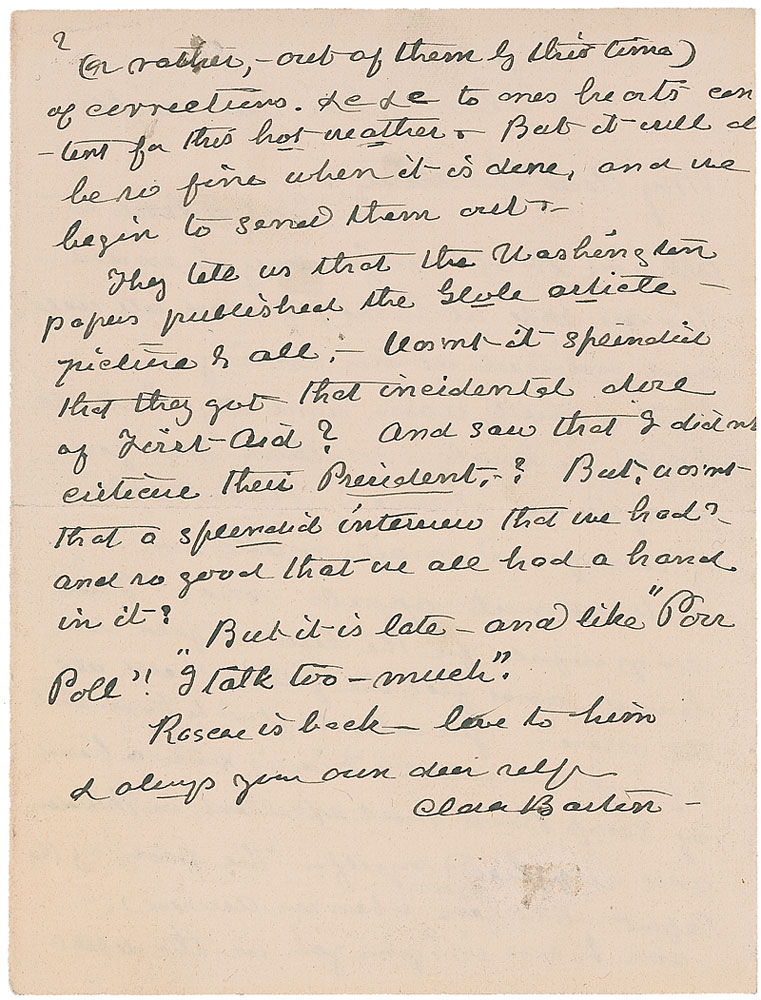 2
(or rather, - out of them by this time)
of corrections. &c &c to ones hearts con
-tent for this hot weather. - But it will
be so fine when it is done, and we
begin to send them out. -
They tell us that the Washington
papers published the Globe article -
picture & all; - Wasn't it splendid
that they got that incidental dose
of First-Aid? And saw that I didn't
criticise their President, - ? But, wasn't
that a splendid interview that we had?
and so good that we all had a hand
in it?
But it is late - and like "Poor
Poll"! "I talk too - much".
Roscoe is back - love to him
& always your own dear self
Clara Barton -